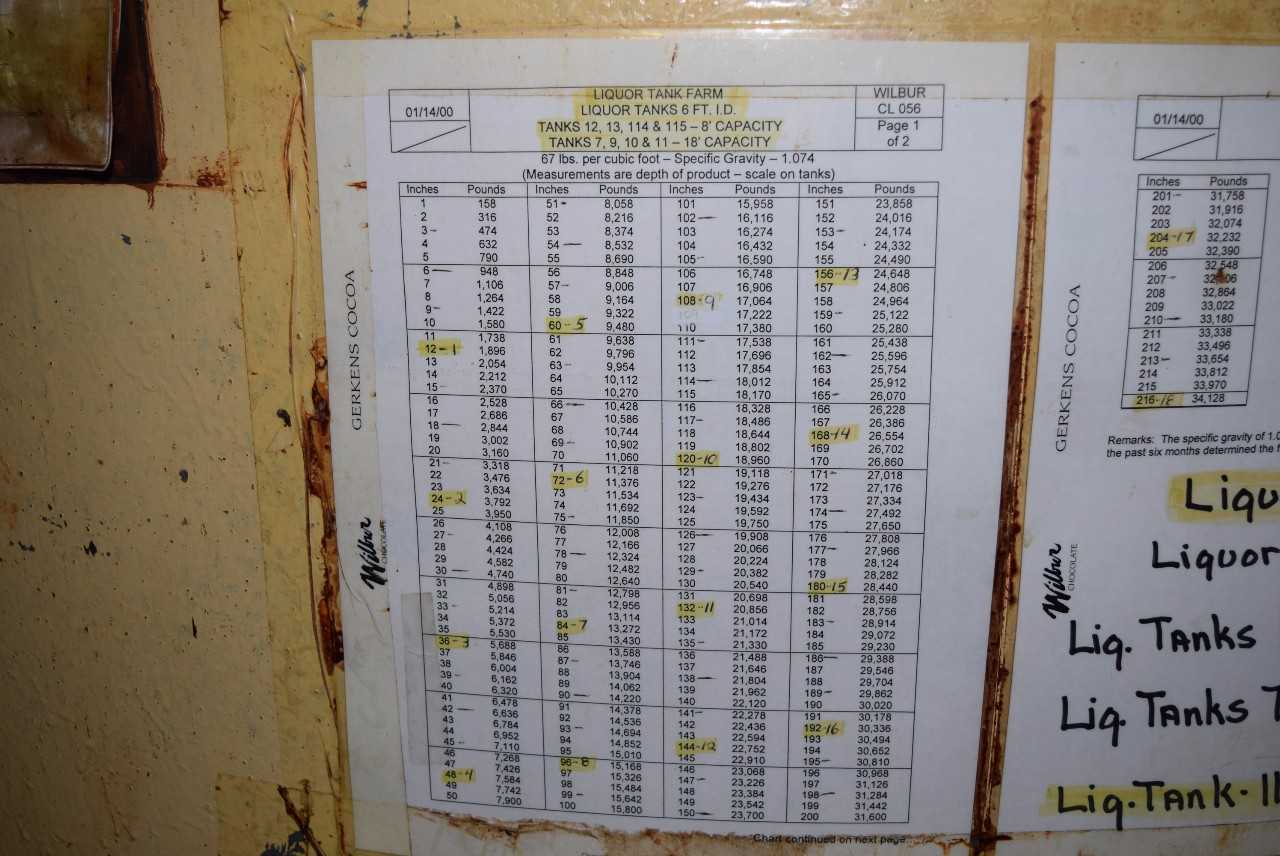 LIQUOR TANK FARM
LIQUOR TANKS 6 FT. I.D.
TANKS 12, 13, 114 & 115 – 8' CAPACITY
TANKS 7, 9, 10 & 11 – 18' CAPACITY
01/14/00
WILBUR
CL 056
Page 1
of 2
67 lbs. per cubic foot – Specific Gravity – 1.074
(Measurements are depth of product – scale on tanks)
Inches Pounds Inches Pounds Inches Pounds Inches Pounds
1 158 51- 8,058 101 15,958 151 23,858
2 316 52 8,216 102- 16,116 152 24,016
3- 474 53 8,374 103 16,274 153- 24,174
4 632 54- 8,532 104 16,432 154 24,332
5 790 55 8,690 105- 16,590 155 24,490
6- 948 56 8,848 106 16,748 156-13 24,648
7 1,106 57- 9,006 107 16,906 157 24,806
8 1,264 58 9,164 108-9 17,064 158 24,964
9- 1,422 59 9,322 109 17,222 159- 25,122
10 1,580 60-5 9,480 110 17,380 160 25,280
11 1,738 61 9,638 111- 17,538 161 25,438
12-1 1,896 62 9,796 112 17,696 162- 25,596
13 2,054 63- 9,954 113 17,854 163 25,754
14 2,212 64 10,112 114- 18,012 164 25,912
15- 2,370 65 10,270 115 18,170 165- 26,070
16 2,528 66- 10,428 116 18,328 166 26,228
17 2,686 67 10,586 117- 18,486 167 26,386
18- 2,844 68 10,744 118 18,644 168-14 26,554
19 3,002 69- 10,902 119 18,802 169 26,702
20 3,160 70 11,060 120-10 18,960 170 26,860
21- 3,318 71 11,218 121 19,118 171- 27,018
22 3,476 72-6 11,376 122 19,276 172 27,176
23 3,634 73 11,534 123- 19,434 173 27,334
24-2 3,792 74 11,692 124 19,592 174- 27,492
25 3,950 75- 11,850 125 19,750 175 27,650
26 4,108 76 12,008 126- 19,908 176 27,808
27- 4,266 77 12,166 127 20,066 177- 27,966
28 4,424 78- 12,324 128 20,224 178 28,124
29 4,582 79 12,482 129- 20,382 179 28,282
30- 4,740 80 12,640 130 20,540 180-15 28,440
31 4,898 81- 12,798 131 20,698 181 28,598
32 5,056 82 12,956 132-11 20,856 182 28,756
33- 5,214 83 13,114 133 21,014 183- 28,914
34 5,372 84-7 13,272 134 21,172 184 29,072
35 5,530 85 13,430 135- 21,330 185 29,230
36-3 5,688 86 13,588 136 21,488 186- 29,388
37 5,846 87- 13,746 137 21,646 187 29,546
38 6,004 88 13,904 138- 21,804 188 29,704
39- 6,162 89 14,062 139 21,962 189- 29,862
40 6,320 90- 14,220 140 22,120 190 30,020
41 6,478 91 14,378 141- 22,278 191 30,178
42- 6,636 92 14,536 142 22,436 192-16 30,336
43 6,784 93- 14,694 143 22,594 193 30,494
44 6,952 94 14,852 144-12 22,752 194 30,652
45- 7,110 95 15,010 145 22,910 195- 30,810
46 7,268 96-8 15,168 146 23,068 196 30,968
47 7,426 97 15,326 147- 23,226 197 31,126
48-4 7,584 98 15,484 148 23,384 198- 31,284
49 7,742 99- 15,642 149 23,542 199 31,442
50 7,900 100 15,800 150- 23,700 200 31,600
Chart continued on next page
GERKENS COCOA
Wilbur
CHOCOLATE
01/14/00
Inches Pounds
201- 31,758
202 31,916
203 32,074
204-17 32,232
205 32,390
206 32,548
207-
208 32,864
209 33,022
210- 33,180
211 33,338
212 33,496
213- 33,654
214 33,812
215 33,970
216-18 34,128
Remarks: The specific gravity of
the past six months determined the
Liquor
Liq. Tanks
Liq. Tanks
Liq. Tank
GERKENS COCOA
Wilbur
CHOCOLATE